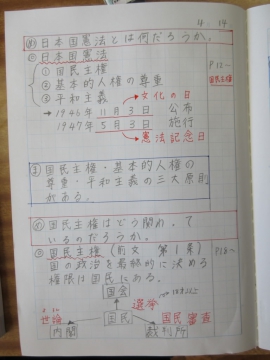 4 14
日本国憲法とは何だろうか。
日本国憲法
① 国民主権
② 基本的人権の尊重
③ 平和主義
P12～
国民主権
文化の日
→1946年 11月 3日 公布
1947年 5月 3日 施行
憲法記念日
国民主権・基本的人権の
尊重・平和主義の三大原則
がある。
国民主権はどう関わって
いるのだろうか。
国民主権(前文 第1条)
P18～
国の政治を最終的に決める
権限は国民にある。
国会
選挙
世論
国民
国民審査
内閣
裁判所